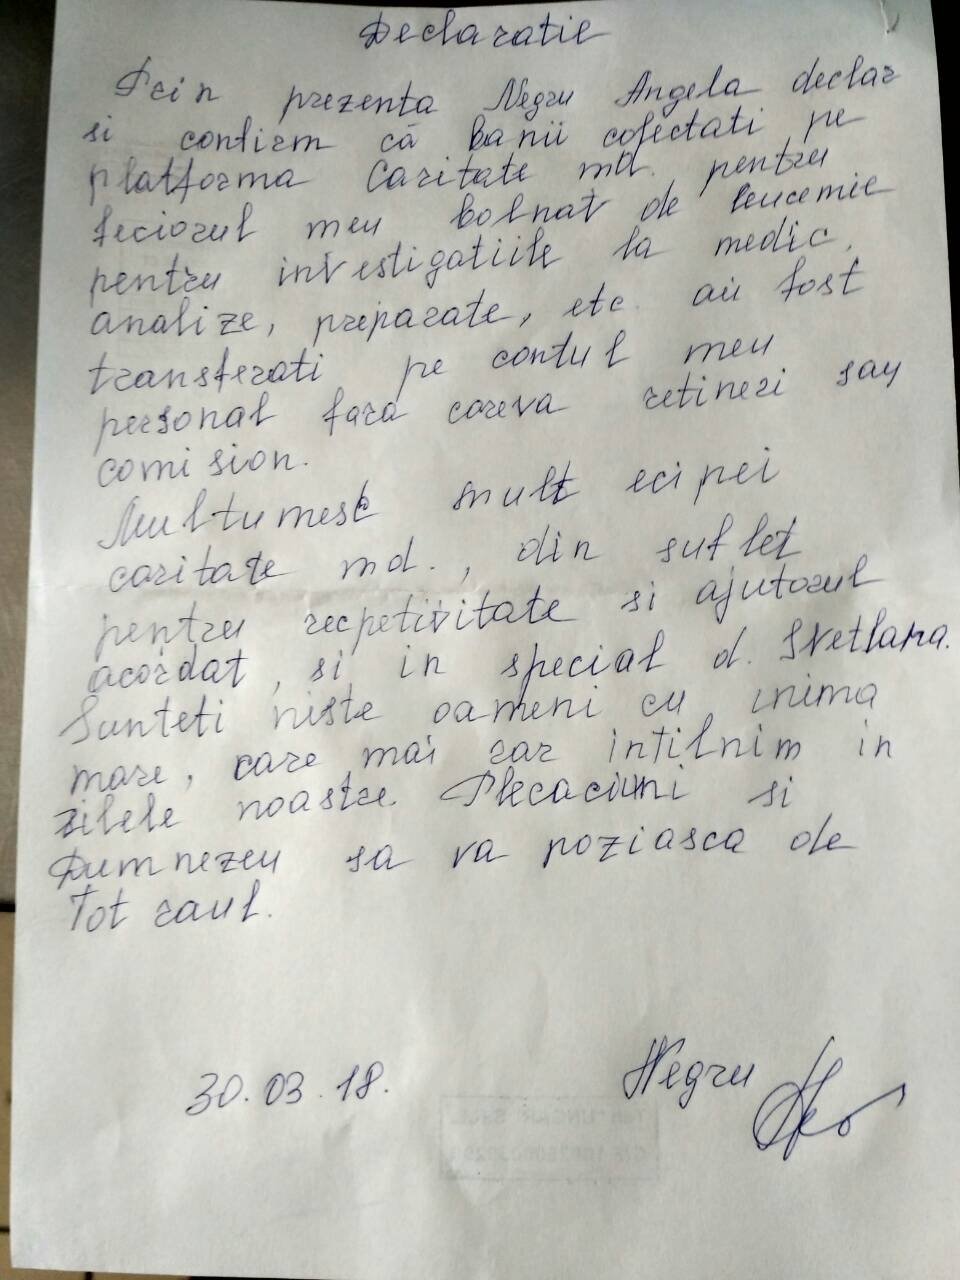 Declaratie
Prin prezenta Negru Angela declar
si confirm că banii colectati pe
platforma Caritate md. pentru
feciorul meu bolnav de leucemie
pentru investigatiile la medic,
analize, preparate, etc. au fost
transferati pe contul meu
personal fara careva retineri sau
comision.
Multumesc mult ecipei
caritate md., din suflet
pentru recpetivitate si ajutorul
acordat, si in special d. Svetlana.
Sunteti niste oameni cu inima
mare, care mai rar intilnim in
zilele noastre. Plecaciuni si
Dumnezeu sa va poziasca de
Tot raul.
30.03.18.
Negru